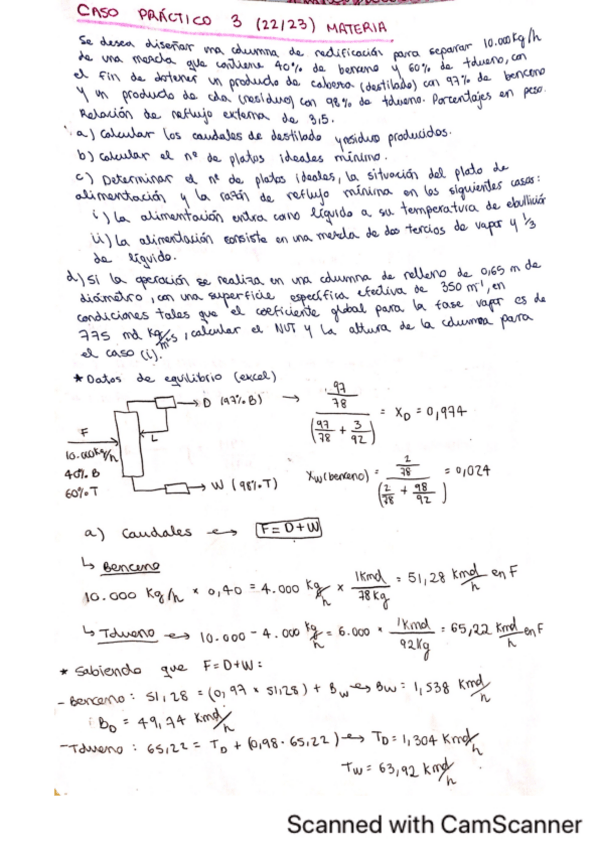 CASO PRÁCTICO 3 (22/23) MATERIA
Se desea diseñar una columna de rectificación para separar 10.000 kg/h
de una mezcla que contiene 40% de benceno y 60% de tolueno, con
el fin de obtener un producto de cabeza (destilado) con 97% de benceno
y un producto de cola (residuo) con 98% de tolueno. Porcentajes en peso.
Relación de reflujo externa de 3,5.
a) Calcular los caudales de destilado y residuo producidos.
b) Calcular el nº de platos ideales mínimo.
c) Determinar el nº de platos ideales, la situación del plato de
alimentación y la razón de reflujo mínima en los siguientes casos:
i) La alimentación entra como líquido a su temperatura de ebullición
ii) La alimentación consiste en una mezcla de dos tercios de vapor y 1/3
de líquido.
d) Si la operación se realiza en una columna de relleno de 0,65 m de
diámetro, con una superficie específica efectiva de 350 m⁻¹, en
condiciones tales que el coeficiente global para la fase vapor es de
775 mol kg/m²s, calcular el NUT y la altura de la columna para
el caso (i).
* Datos de equilibrio (excel)
F
10.000 kg/h
40% B
60% T
L
→ D (97% B)
→ W (98% T)
→ (97/78) / (97/78 + 3/92) = XD = 0,974
Xw (benceno) = (2/78) / (2/78 + 98/92) = 0,024
a) Caudales → F = D + W
↳ Benceno
10.000 kg/h × 0,40 = 4.000 kg/h × 1 Kmol/78 kg = 51,28 Kmol/h en F
↳ Tolueno → 10.000 - 4.000 kg/h = 6.000 × 1 Kmol/92 kg = 65,22 Kmol/h en F
* Sabiendo que F = D + W:
- Benceno: 51,28 = (0,97 × 51,28) + Bw → Bw = 1,538 Kmol/h
BD = 49,74 Kmol/h
- Tolueno: 65,22 = TD + (0,98 · 65,22) → TD = 1,304 Kmol/h
Tw = 63,92 Kmol/h
Scanned with CamScanner